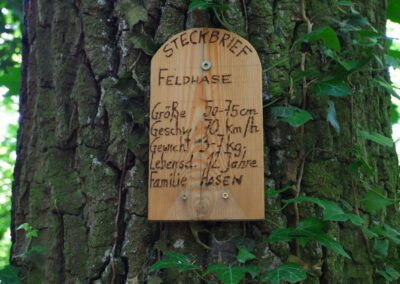 STECKBRIEF
FELDHASE
Größe 50-75cm
Geschw. 70 km/h
Gewicht 3-7 kg,
Lebensd. 12 Jahre
Familie HASEN